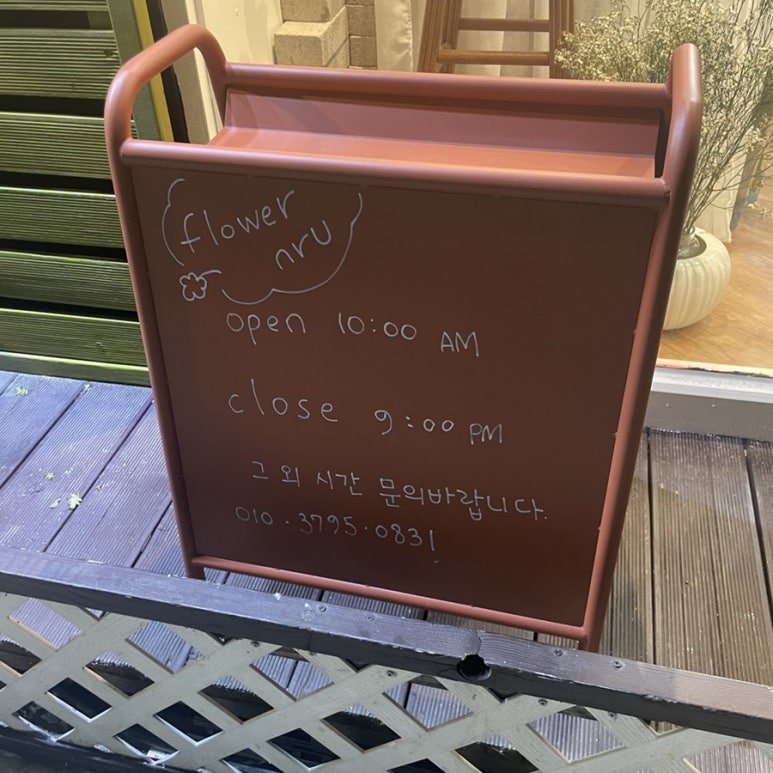 flower
nru
open 10:00 AM
close 9:00 PM
그 외 시간 문의바랍니다.
010.3795.0831